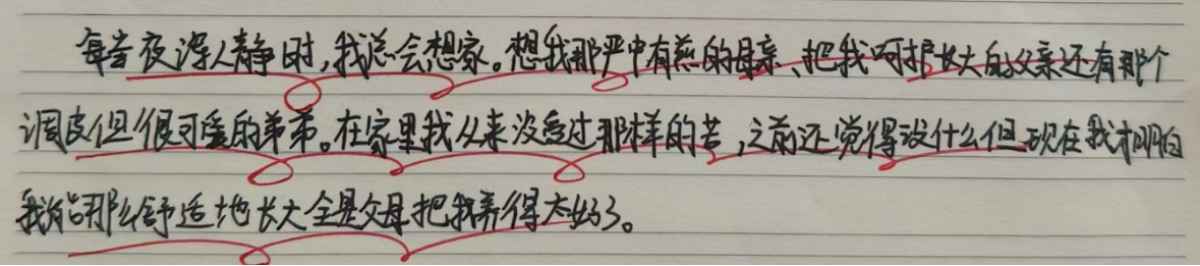 每当夜深人静时,我总会想家。想我那严中有慈的母亲、把我呵护长大的父亲还有那个
调皮但很可爱的弟弟。在家里我从来没受过那样的苦,之前还觉得没什么但现在我才明白
我能那么舒适地长大全是父母把我养得太好了。